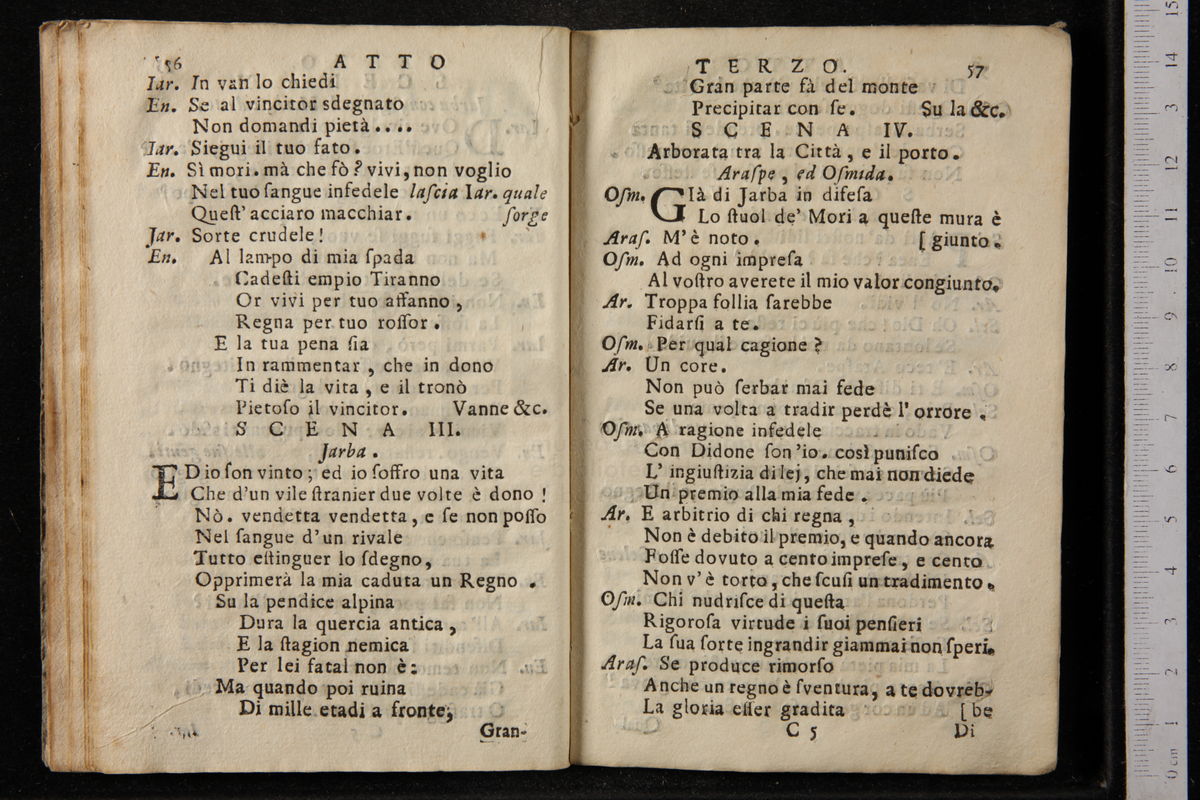 56 ATTO
Iar. In van lo chiedi
En. Se al vincitor sdegnato
Non domandi pietà....
Iar. Siegui il tuo fato.
En. Sì mori. mà che fò? vivi, non voglio
Nel tuo ſangue infedele laſcia Iar. quale
Queſt' acciaro macchiar. ſorge
Jar. Sorte crudele!
En. Al lampo di mia ſpada
Cadeſti empio Tiranno
Or vivi per tuo affanno,
Regna per tuo roſſor.
E la tua pena ſia
In rammentar, che in dono
Ti diè la vita, e il tronò
Pietoſo il vincitor. Vanne &c.
SCENA III.
Jarba.
E Dio ſon vinto; ed io ſoffro una vita
Che d'un vile ſtranier due volte è dono!
Nò. vendetta vendetta, e ſe non poſſo
Nel ſangue d'un rivale
Tutto eſtinguer lo ſdegno,
Opprimerà la mia caduta un Regno.
Su la pendice alpina
Dura la quercia antica,
E la ſtagion nemica
Per lei fatal non è:
Ma quando poi ruina
Di mille etadi a fronte,
Gran-
TERZO. 57
Gran parte fà del monte
Precipitar con ſe. Su la &c.
SCENA IV.
Arborata tra la Città, e il porto.
Araſpe, ed Oſmida.
Oſm. GIà di Jarba in difeſa
Lo ſtuol de' Mori a queſte mura è
Araſ. M'è noto. [giunto.
Oſm. Ad ogni impreſa
Al voſtro averete il mio valor congiunto.
Ar. Troppa follia ſarebbe
Fidarſi a te.
Oſm. Per qual cagione?
Ar. Un core.
Non può ſerbar mai fede
Se una volta a tradir perdè l' orrore.
Oſm. A ragione infedele
Con Didone ſon'io. così puniſco
L' ingiuſtizia di lej, che mai non diede
Un premio alla mia fede.
Ar. E arbitrio di chi regna,
Non è debito il premio, e quando ancora
Foſſe dovuto a cento impreſe, e cento
Non v' è torto, che ſcuſi un tradimento.
Oſm. Chi nudriſce di queſta
Rigoroſa virtude i ſuoi penſieri
La ſua ſorte ingrandir giammai non ſperi.
Araſ. Se produce rimorſo
Anche un regno è ſventura, a te dovreb-
La gloria eſſer gradita [be
C 5 Di